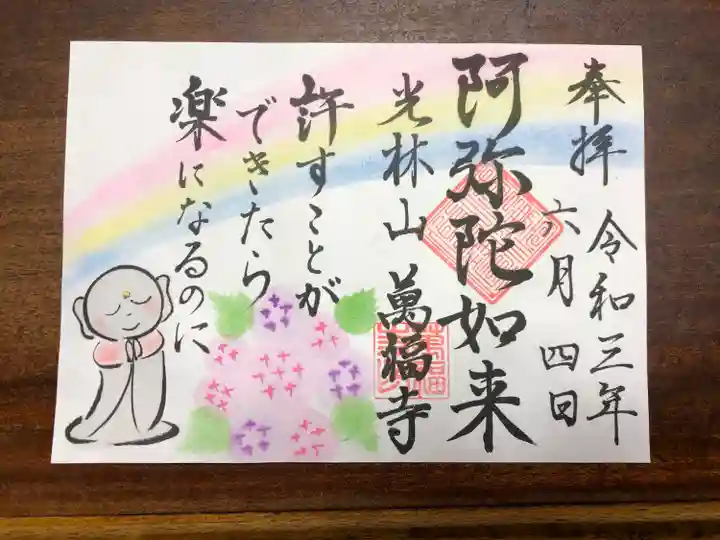 奉拝
令和三年
六月四日
阿弥陀如来
光林山 萬福寺
許すことが
できたら
楽になるのに